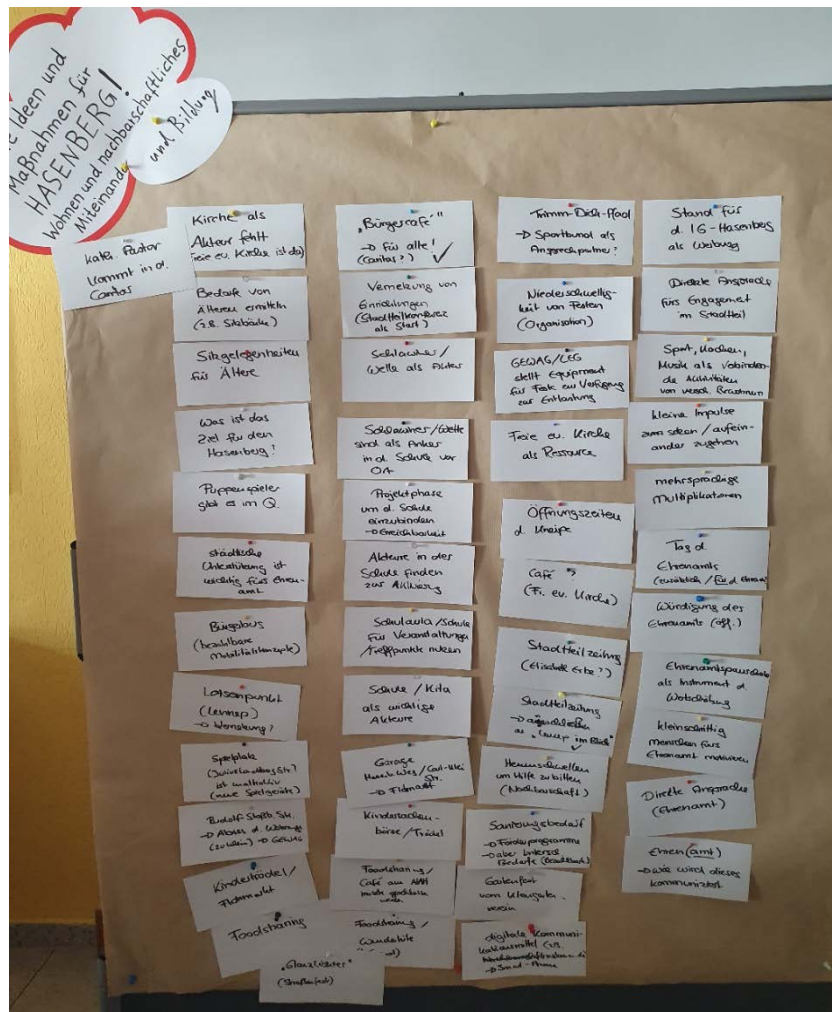 Ideen und
Maßnahmen für
HASENBERG!
Wohnen und nachbarschaftliches
Miteinander
und Bildung
kath. Pastor
kommt in d.
Caritas
Kirche als
Akteur fehlt
Bedarfe von
Älteren ermitteln
(z.B. Sitzbänke)
Sitzgelegenheiten
für Ältere
Was ist das
Ziel für den
Hasenberg?
Puppenspieler
gibt es im Q.
städtische
Unterstützung ist
wichtig fürs Ehren-
amt
Bürgerbus
(bezahlbare
Mobilitätskonzepte)
Lotsenpunkt
(Lennep)
Spielplatz
ist unattraktiv
(neue Spielgeräte)
Kindertrödel/
Flohmarkt
Foodsharing
"Glanzlichter"
(Straßenfest)
"Bürgercafé"
→ für alle!
(Caritas?) ✓
Vernetzung von
Einrichtungen
(Stadtteilkonferenz
als Start)
Schlawiner/
Welle als Akteur
Schlawiner/Welle
sind als Anker
in d. Schule vor
Ort
Projektphase
um d. Schule
einzubinden
→ Erreichbarkeit
Akteure in der
Schule finden
Schulaula/Schule
für Veranstaltungen
/Treffpunkte nutzen
Schule/Kita
als wichtige
Akteure
Garage
→ Flohmarkt
Kindersachen-
börse/Trödel
Foodsharing/
Café am
Foodsharing/
Trimm-Dich-Pfad
→ Sportbund als
Ansprechpartner?
Niederschwellig-
keit von Festen
(Organisation)
GEWAG/LEG
stellt Equipment
für Feste zur Verfügung
zur Entlastung
Freie ev. Kirche
als Ressource
Öffnungszeiten
d. Kneipe
Café ?
(Fr. ev. Kirche)
Stadtteilzeitung
Stadtteilzeitung
"Lennep im Blick"
✓
Hemmschwellen
um Hilfe zu bitten
(Nachbarschaft)
Sanierungsbedarf
→ Förderprogramme
Gartenfest
vom Kleingarten-
verein
digitale Kommuni-
kationsmittel (z.B.
Stand für
d. IG-Hasenberg
als Werbung
Direkte Ansprache
fürs Engagement
im Stadtteil
Sport, Kochen,
Musik als verbinden-
de Aktivitäten
kleine Impulse
zum
ander zugehen
mehrsprachige
Multiplikatoren
Tag d.
Ehrenamts
Würdigung des
Ehrenamts (öff.)
Ehrenamtspauschale
als Instrument d.
Wertschätzung
kleinschrittig
Menschen fürs
Ehrenamt motivieren
Direkte Ansprache
(Ehrenamt)
Ehren(amt)
→ wie wird dieses
kommuniziert